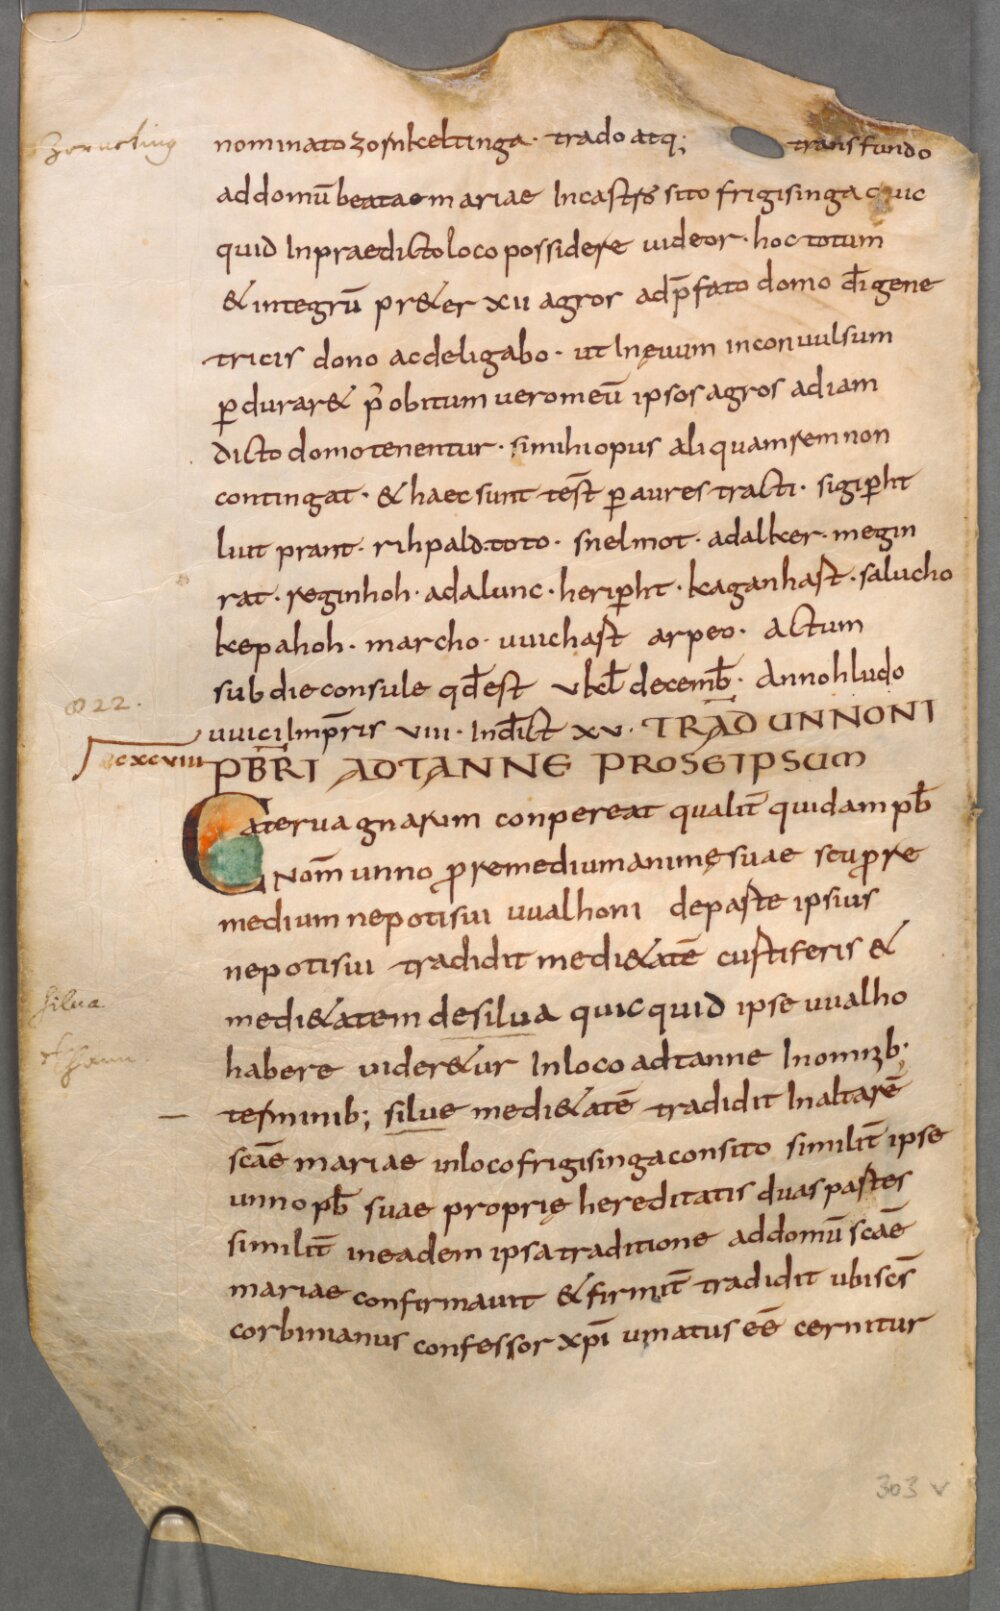 Zorneting
nominato zornkeltinga · trado atq; transfundo
ad domū beatae mariae In castro sito frigisinga quic
quid In praedicto loco possidere uideor · hoc totum
& integrū pr&er xii agros ad p̄fato domo dī gene
tricis dono ac deligabo · ut In ęuum inconuulsum
ꝑdurar& p̄ obitum uero meū ipsos agros ad iam
dicto domo tenentur · si mihi opus aliquam rem non
contingat · & haec sunt test̄ ꝑ aures tracti · sigiꝑht
liut prant · rihpald · toto · snelmot · adalker · megin
rat · reginhoh · adalunc · heriꝑht · kaganhast · salucho
kepahoh · marcho · uuichast arpeo · Actum
sub die consule qđ est v kł decemb̄ · Anno hludo
822.
uuici Imp̄ris viii · Indict̄ xv · TRAD̄ UNNONI
cxcviii
PB̄RI AD TANNE PRO SE IPSUM
Caterua gnarum conpereat qualit̄ quidam pb̄
Nom̄ unno ꝓ remedium animę suae seu ꝓ re
medium nepoti sui uualhoni de parte ipsius
nepoti sui tradidit medi&atē curtiferis &
silua
medi&atem de silua quicquid ipse uualho
habere uider&ur In loco ad tanne In omnib;
terminib; silue medi&atē tradidit In altarē
scāe mariae in loco frigisinga consito similit̄ ipse
unno pb̄ suae proprię hereditatis duas partes
similit̄ in eadem ipsa traditione ad domū scāe
mariae confirmauit & firmit̄ tradidit ubi scs̄
corbinianus confessor xp̄i umatus eē cernitur
303 v